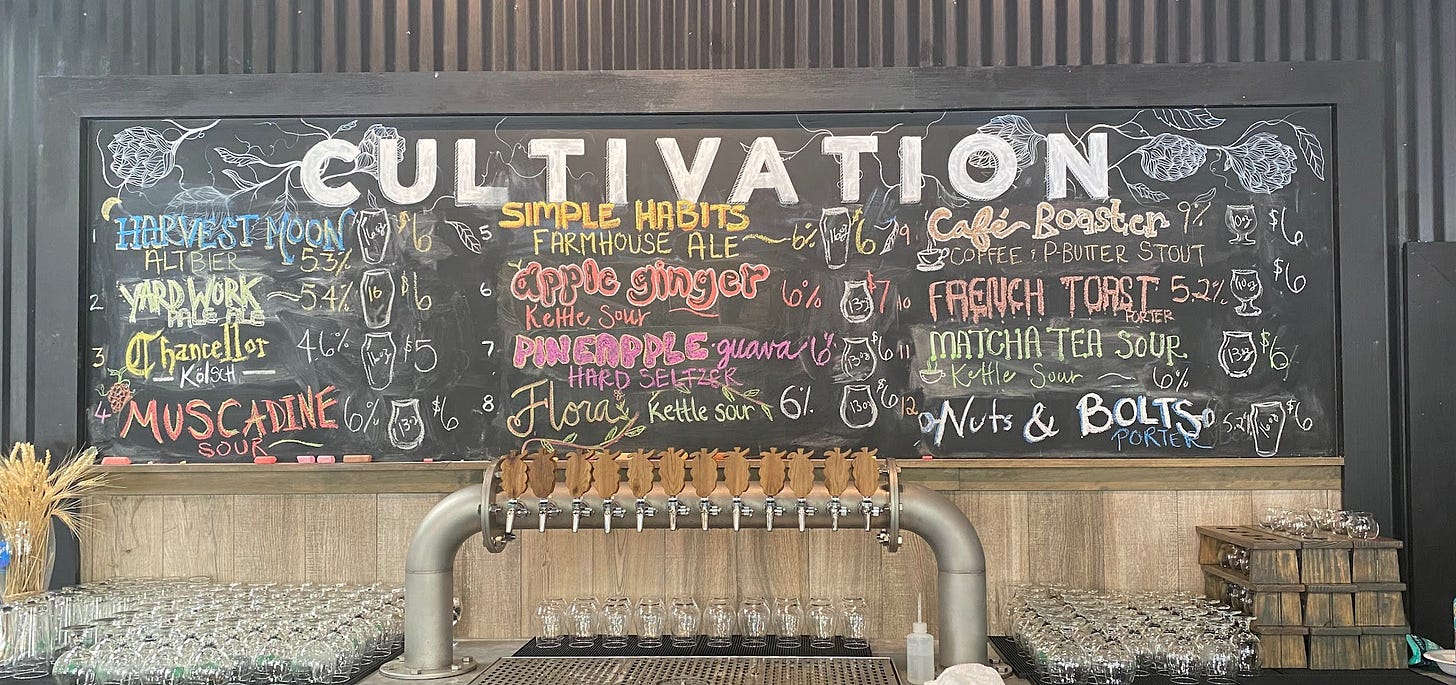 CULTIVATION
1 HARVEST MOON 16oz $6
ALTBIER 5.3%
2 YARD WORK 5.4% 16 $6
PALE ALE
3 Chancellor 4.6% 16oz $5
Kölsch
4 MUSCADINE 6% 13oz $6
SOUR
5 SIMPLE HABITS
FARMHOUSE ALE 6% 16oz $6
6 apple ginger 6% 13oz $7
Kettle Sour
7 PINEAPPLE guava 6% 13oz $6
HARD SELTZER
8 Flora Kettle sour 6% 13oz $6
9 Café Roaster 9% 10oz $6
COFFEE & P-BUTTER STOUT
10 FRENCH TOAST 5.2% 10oz $6
PORTER
11 MATCHA TEA SOUR 13oz $6
Kettle Sour 6%
12 Nuts & BOLTS 5.2% 16oz $6
PORTER